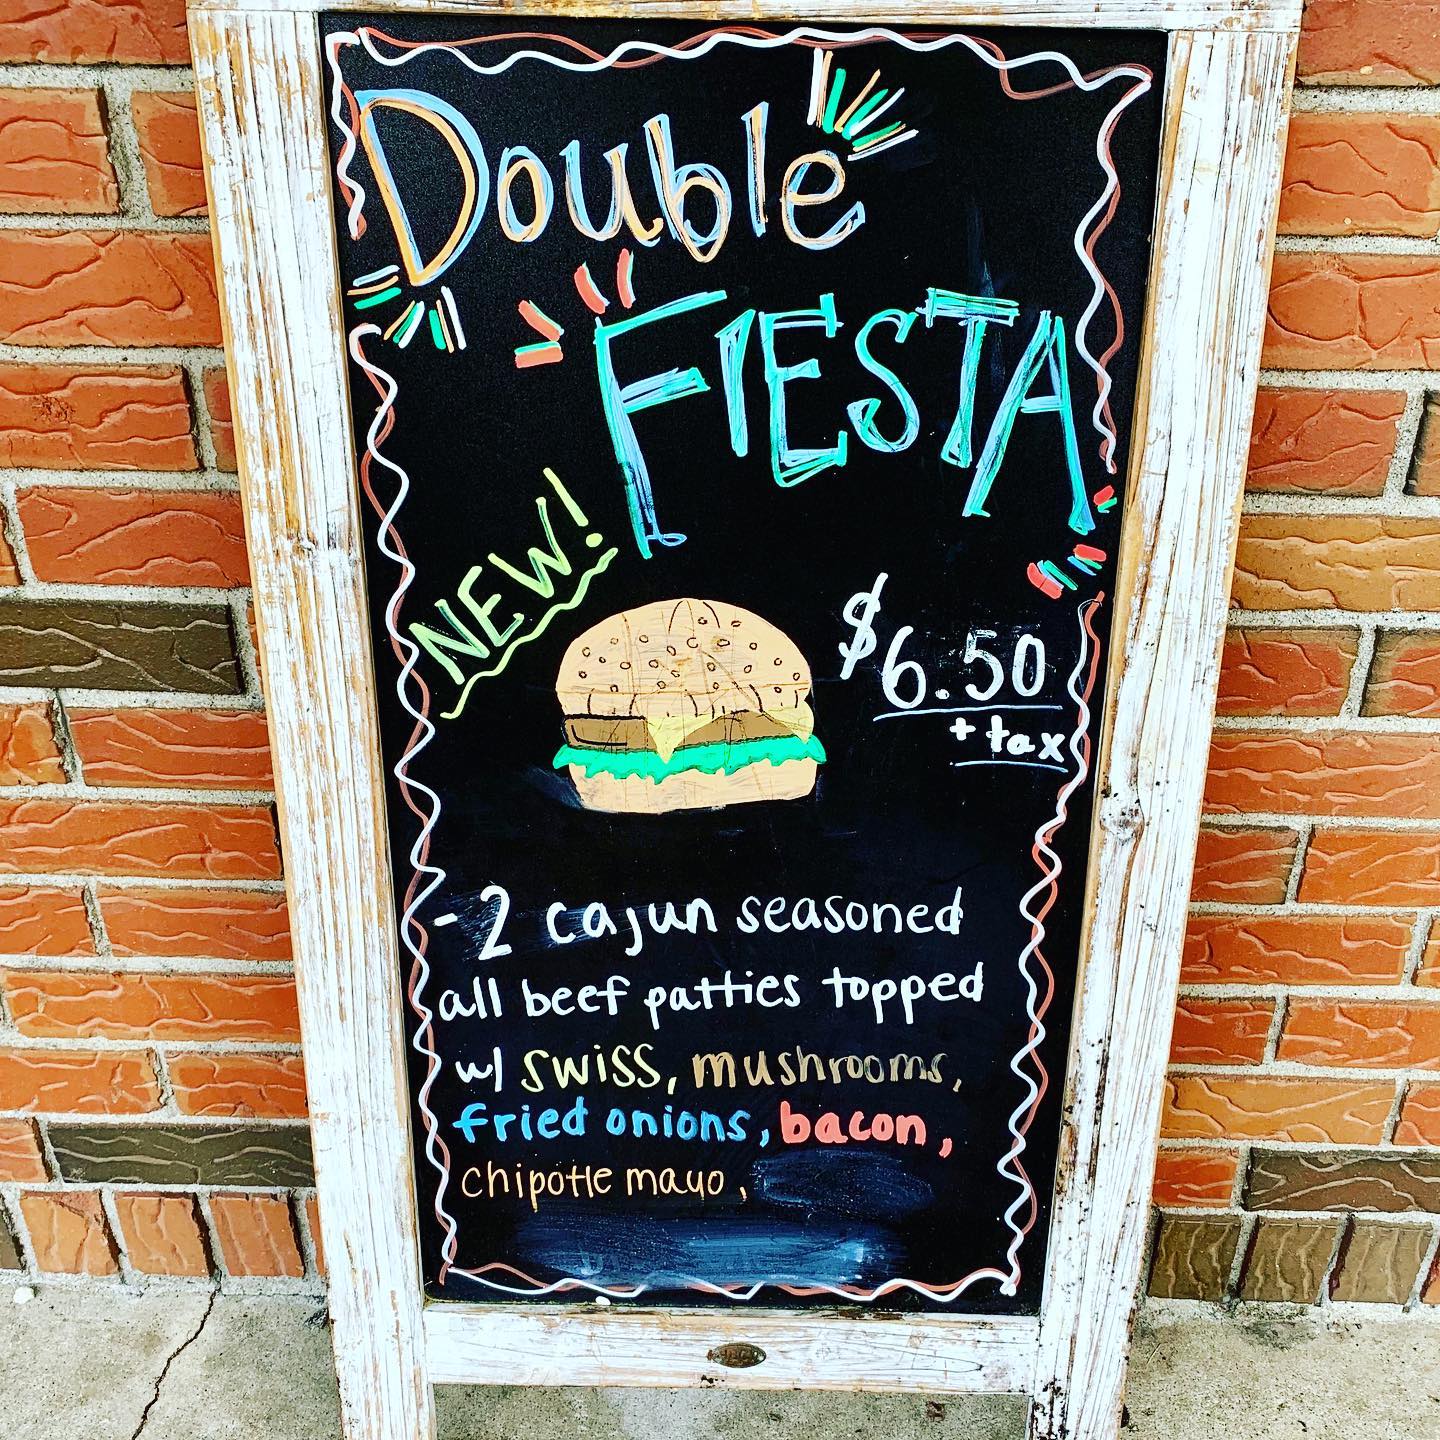 Double
FIESTA
NEW!
$6.50
+ tax
- 2 cajun seasoned
all beef patties topped
w/ swiss, mushrooms,
fried onions, bacon,
chipotle mayo,